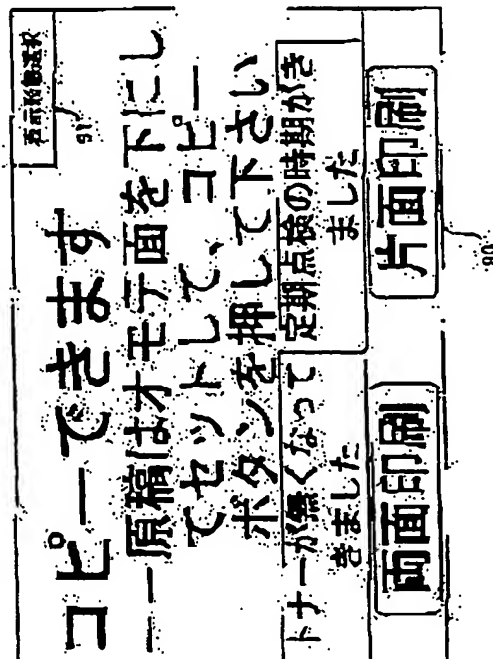 コピーできます
表示形態選択
91
原稿はオモテ面を下にし
てセットして、コピー
ボタンを押して下さい
トナーが無くなって
きました
定期点検の時期がき
ました
両面印刷
片面印刷
90